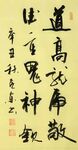 道高龍虎敬
德重鬼神欽
辛丑秋